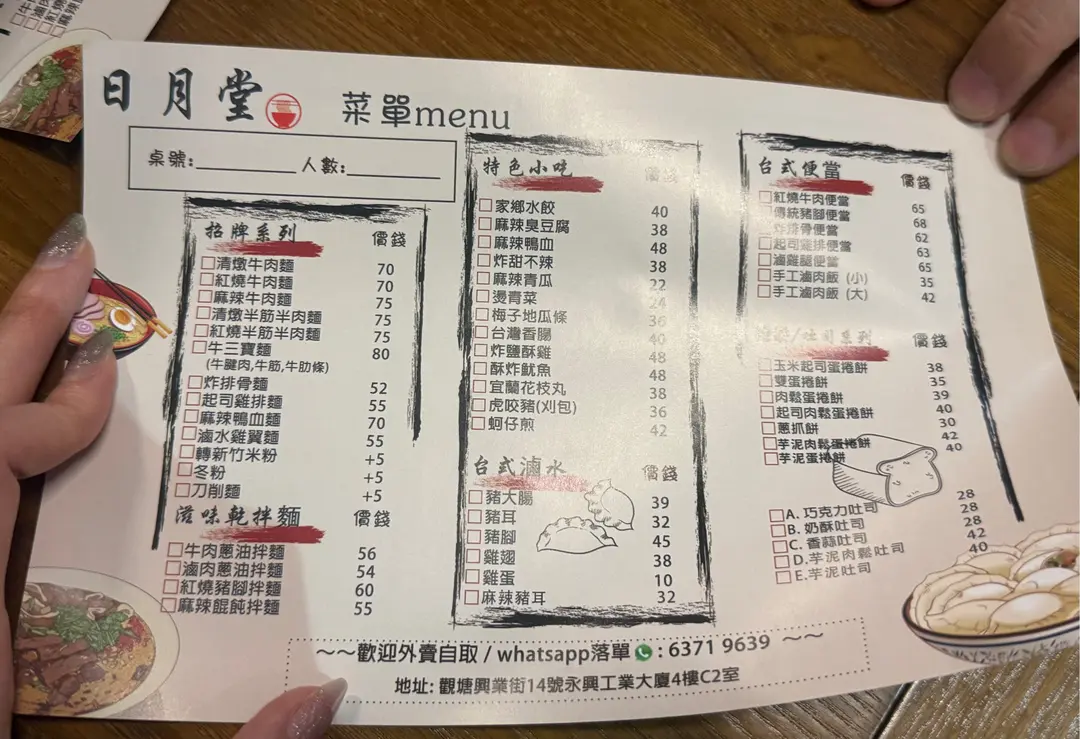 日月堂 菜單menu
桌號:________ 人數:________
招牌系列 價錢
□清燉牛肉麵 70
□紅燒牛肉麵 70
□麻辣牛肉麵 75
□清燉半筋半肉麵 75
□紅燒半筋半肉麵 75
□牛三寶麵 80
(牛腱肉,牛筋,牛肋條)
□炸排骨麵 52
□起司雞排麵 55
□麻辣鴨血麵 70
□滷水雞翼麵 55
□轉新竹米粉 +5
□冬粉 +5
□刀削麵 +5
滋味乾拌麵 價錢
□牛肉蔥油拌麵 56
□滷肉蔥油拌麵 54
□紅燒豬腳拌麵 60
□麻辣餛飩拌麵 55
特色小吃 價錢
□家鄉水餃 40
□麻辣臭豆腐 38
□麻辣鴨血 48
□炸甜不辣 38
□麻辣青瓜 22
□燙青菜 24
□梅子地瓜條 36
□台灣香腸 40
□炸鹽酥雞 48
□酥炸魷魚 48
□宜蘭花枝丸 38
□虎咬豬(刈包) 36
□蚵仔煎 42
台式滷水 價錢
□豬大腸 39
□豬耳 32
□豬腳 45
□雞翅 38
□雞蛋 10
□麻辣豬耳 32
台式便當 價錢
□紅燒牛肉便當 65
□傳統豬腳便當 68
□炸排骨便當 62
□起司雞排便當 63
□滷雞腿便當 65
□手工滷肉飯 (小) 35
□手工滷肉飯 (大) 42
/吐司系列 價錢
□玉米起司蛋捲餅 38
□雙蛋捲餅 35
□肉鬆蛋捲餅 39
□起司肉鬆蛋捲餅 40
□蔥抓餅 30
□芋泥肉鬆蛋捲餅 42
□芋泥蛋捲餅 40
□A. 巧克力吐司 28
□B. 奶酥吐司 28
□C. 香蒜吐司 28
□D.芋泥肉鬆吐司 42
□E.芋泥吐司 40
~~歡迎外賣自取 / whatsapp落單 : 6371 9639 ~~
地址: 觀塘興業街14號永興工業大廈4樓C2室